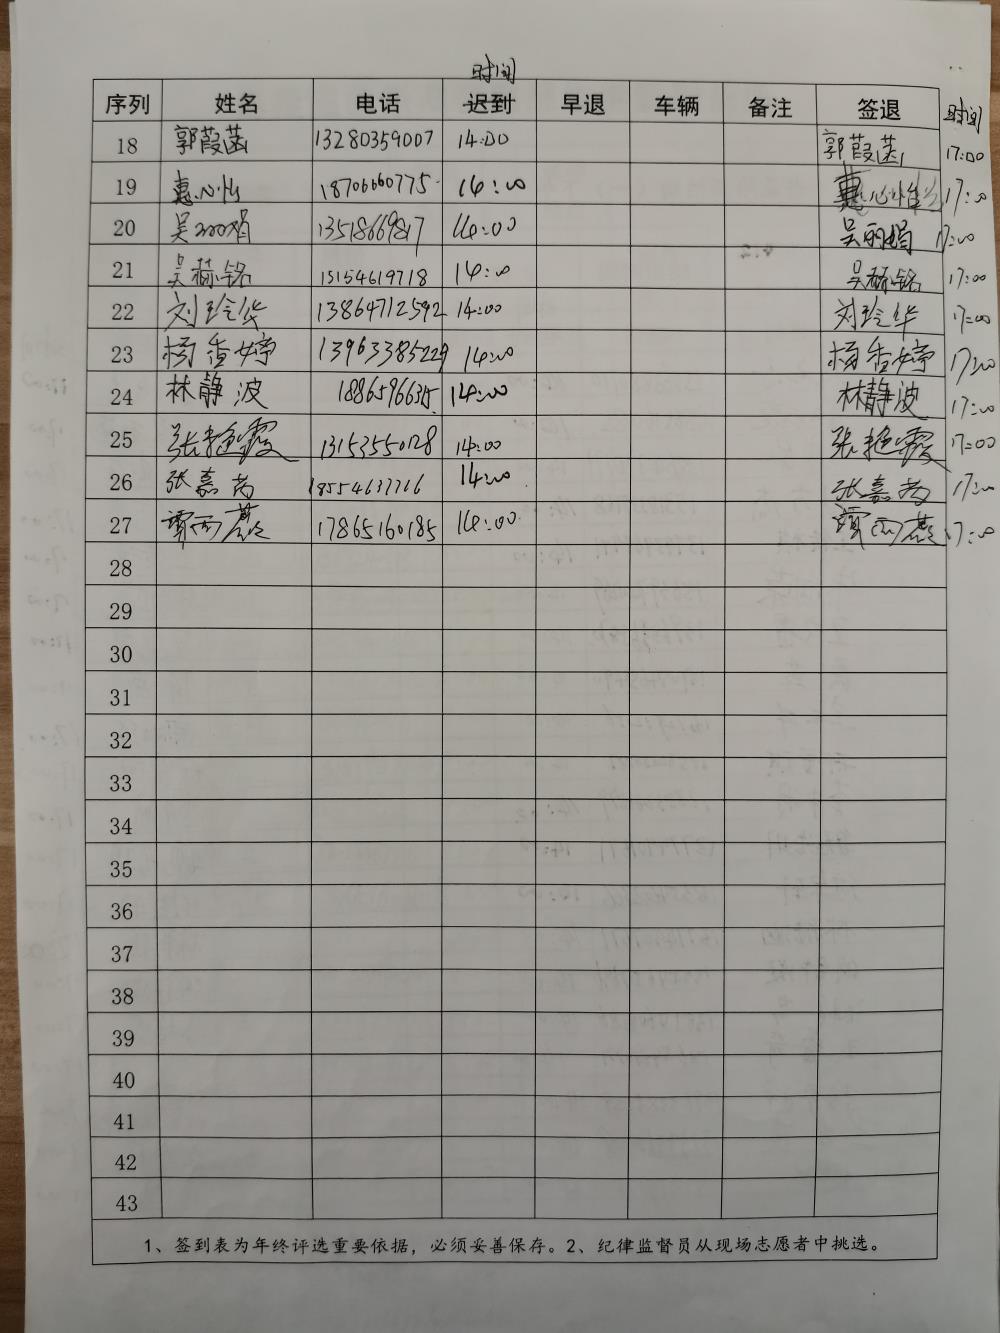 时间
序列 姓名 电话 迟到 早退 车辆 备注 签退 时间
18 郭葭菡 13280359007 14:00 郭葭菡 17:00
19 惠心怡 18706660775 14:00 惠心怡 17:00
20 吴丽娟 13518669817 14:00 吴丽娟 17:00
21 吴赫铭 15154619718 14:00 吴赫铭 17:00
22 刘玲华 13864712592 14:00 刘玲华 17:00
23 杨香婷 13963385229 14:00 杨香婷 17:00
24 林静波 14:00 林静波 17:00
25 张艳霞 13153550128 14:00 张艳霞 17:00
26 张嘉芮 14:00 张嘉芮 17:00
27 17865160185 14:00 17:00
28
29
30
31
32
33
34
35
36
37
38
39
40
41
42
43
1、签到表为年终评选重要依据，必须妥善保存。2、纪律监督员从现场志愿者中挑选。